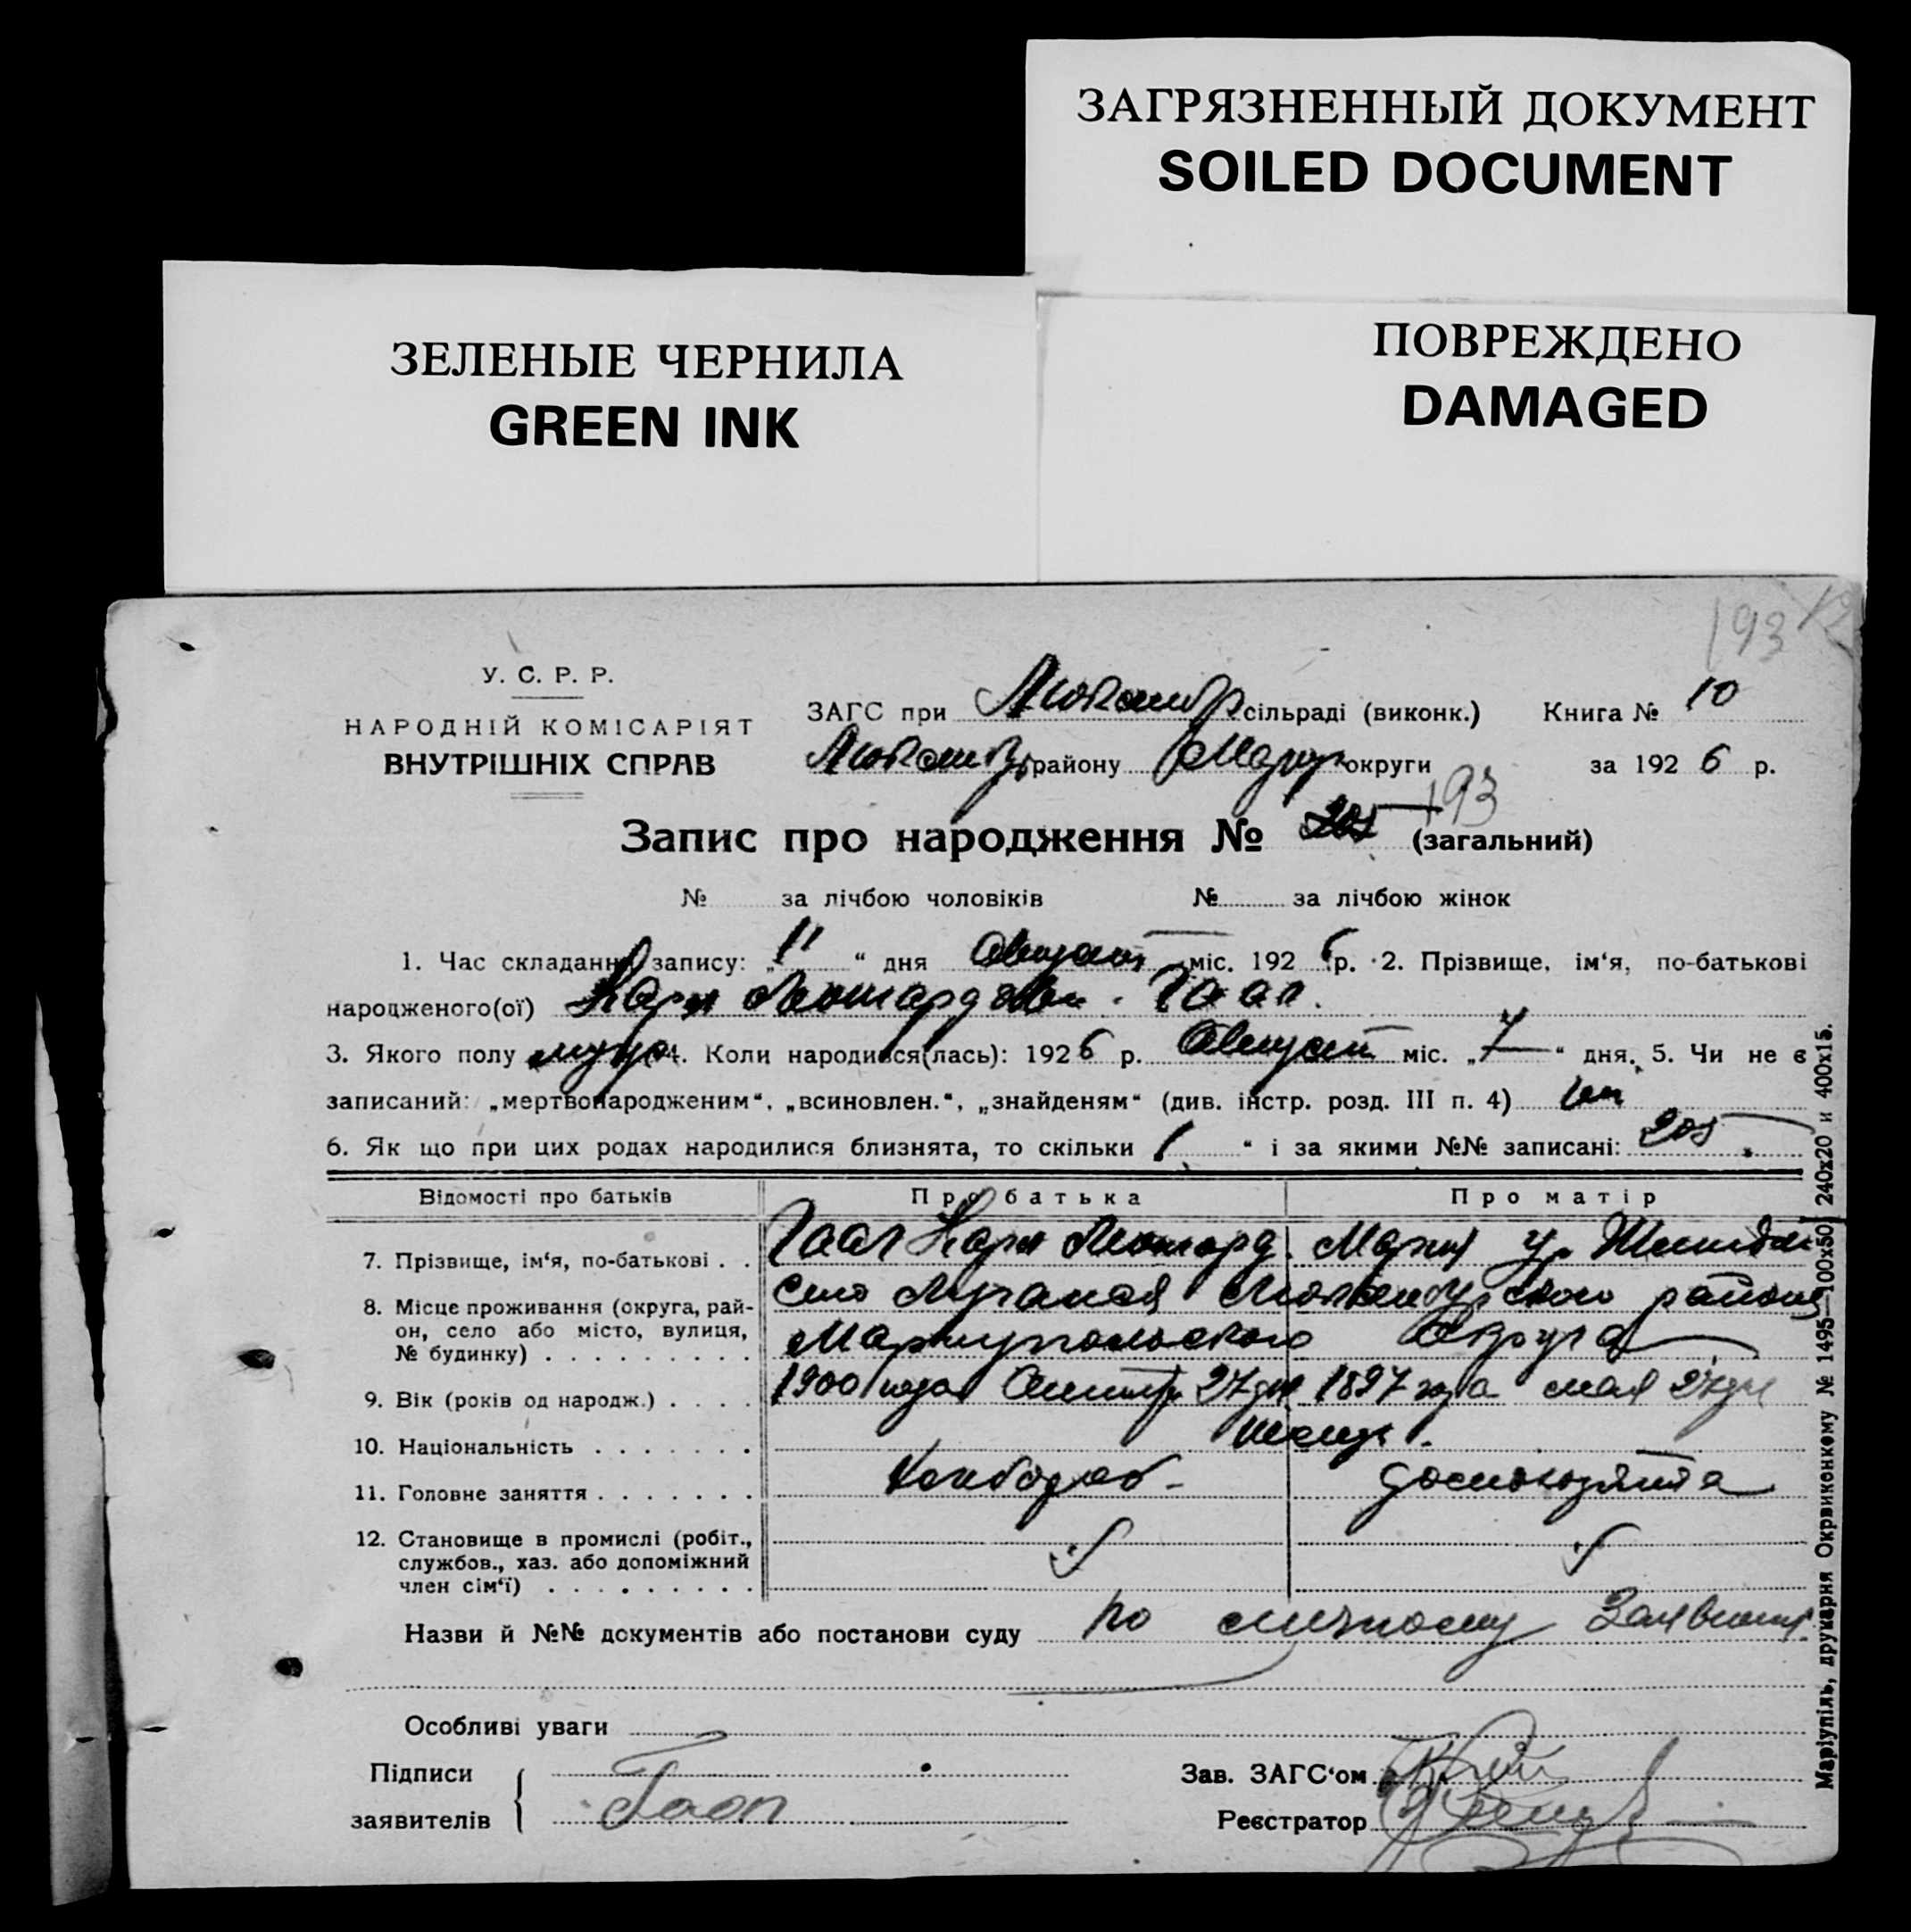 ЗАГРЯЗНЕННЫЙ ДОКУМЕНТ
SOILED DOCUMENT
ЗЕЛЕНЫЕ ЧЕРНИЛА
GREEN INK
ПОВРЕЖДЕНО
DAMAGED
193
У. С. Р. Р.
НАРОДНІЙ КОМІСАРІЯТ
ВНУТРІШНІХ СПРАВ
ЗАГС при сільраді (виконк.) Книга № 10
району округи за 1926 р.
193
Запис про народження № 205 (загальний)
№ за лічбою чоловіків № за лічбою жінок
1. Час складання запису: „11“ дня Август міс. 1926 р. 2. Прізвище, ім‘я, по-батькові
народженого(ої) Гаап.
3. Якого полу муж 4. Коли народився(лась): 1926 р. Август міс. „7“ дня. 5. Чи не є
записаний: „мертвонародженим“, „всиновлен.“, „знайденям“ (див. інстр. розд. III п. 4)
6. Як що при цих родах народилися близнята, то скільки “ і за якими №№ записані: 205
Відомості про батьків Про батька Про матір
7. Прізвище, ім‘я, по-батькові . . Гаап Карл Леонард. Мария ур.
8. Місце проживання (округа, рай- Село района
он, село або місто, вулиця, Мариупольского Округа
№ будинку) . . . . . . . . .
9. Вік (років од народж.) . . . . 1900 года 27 дня 1897 года мая 27 дня
10. Національність . . . . . . . немцы.
11. Головне заняття . . . . . . . домохозяйка
12. Становище в промислі (робіт.,
службов., хаз. або допоміжний
член сім‘ї) . . . . . . . . .
Назви й №№ документів або постанови суду по личному Заявлению.
Особливі уваги
Підписи Зав. ЗАГС‘ом
заявителів Гаап Реєстратор
Маріупіль, друкарня Окрвиконкому № 1495—100x50 240x20 и 400x15.